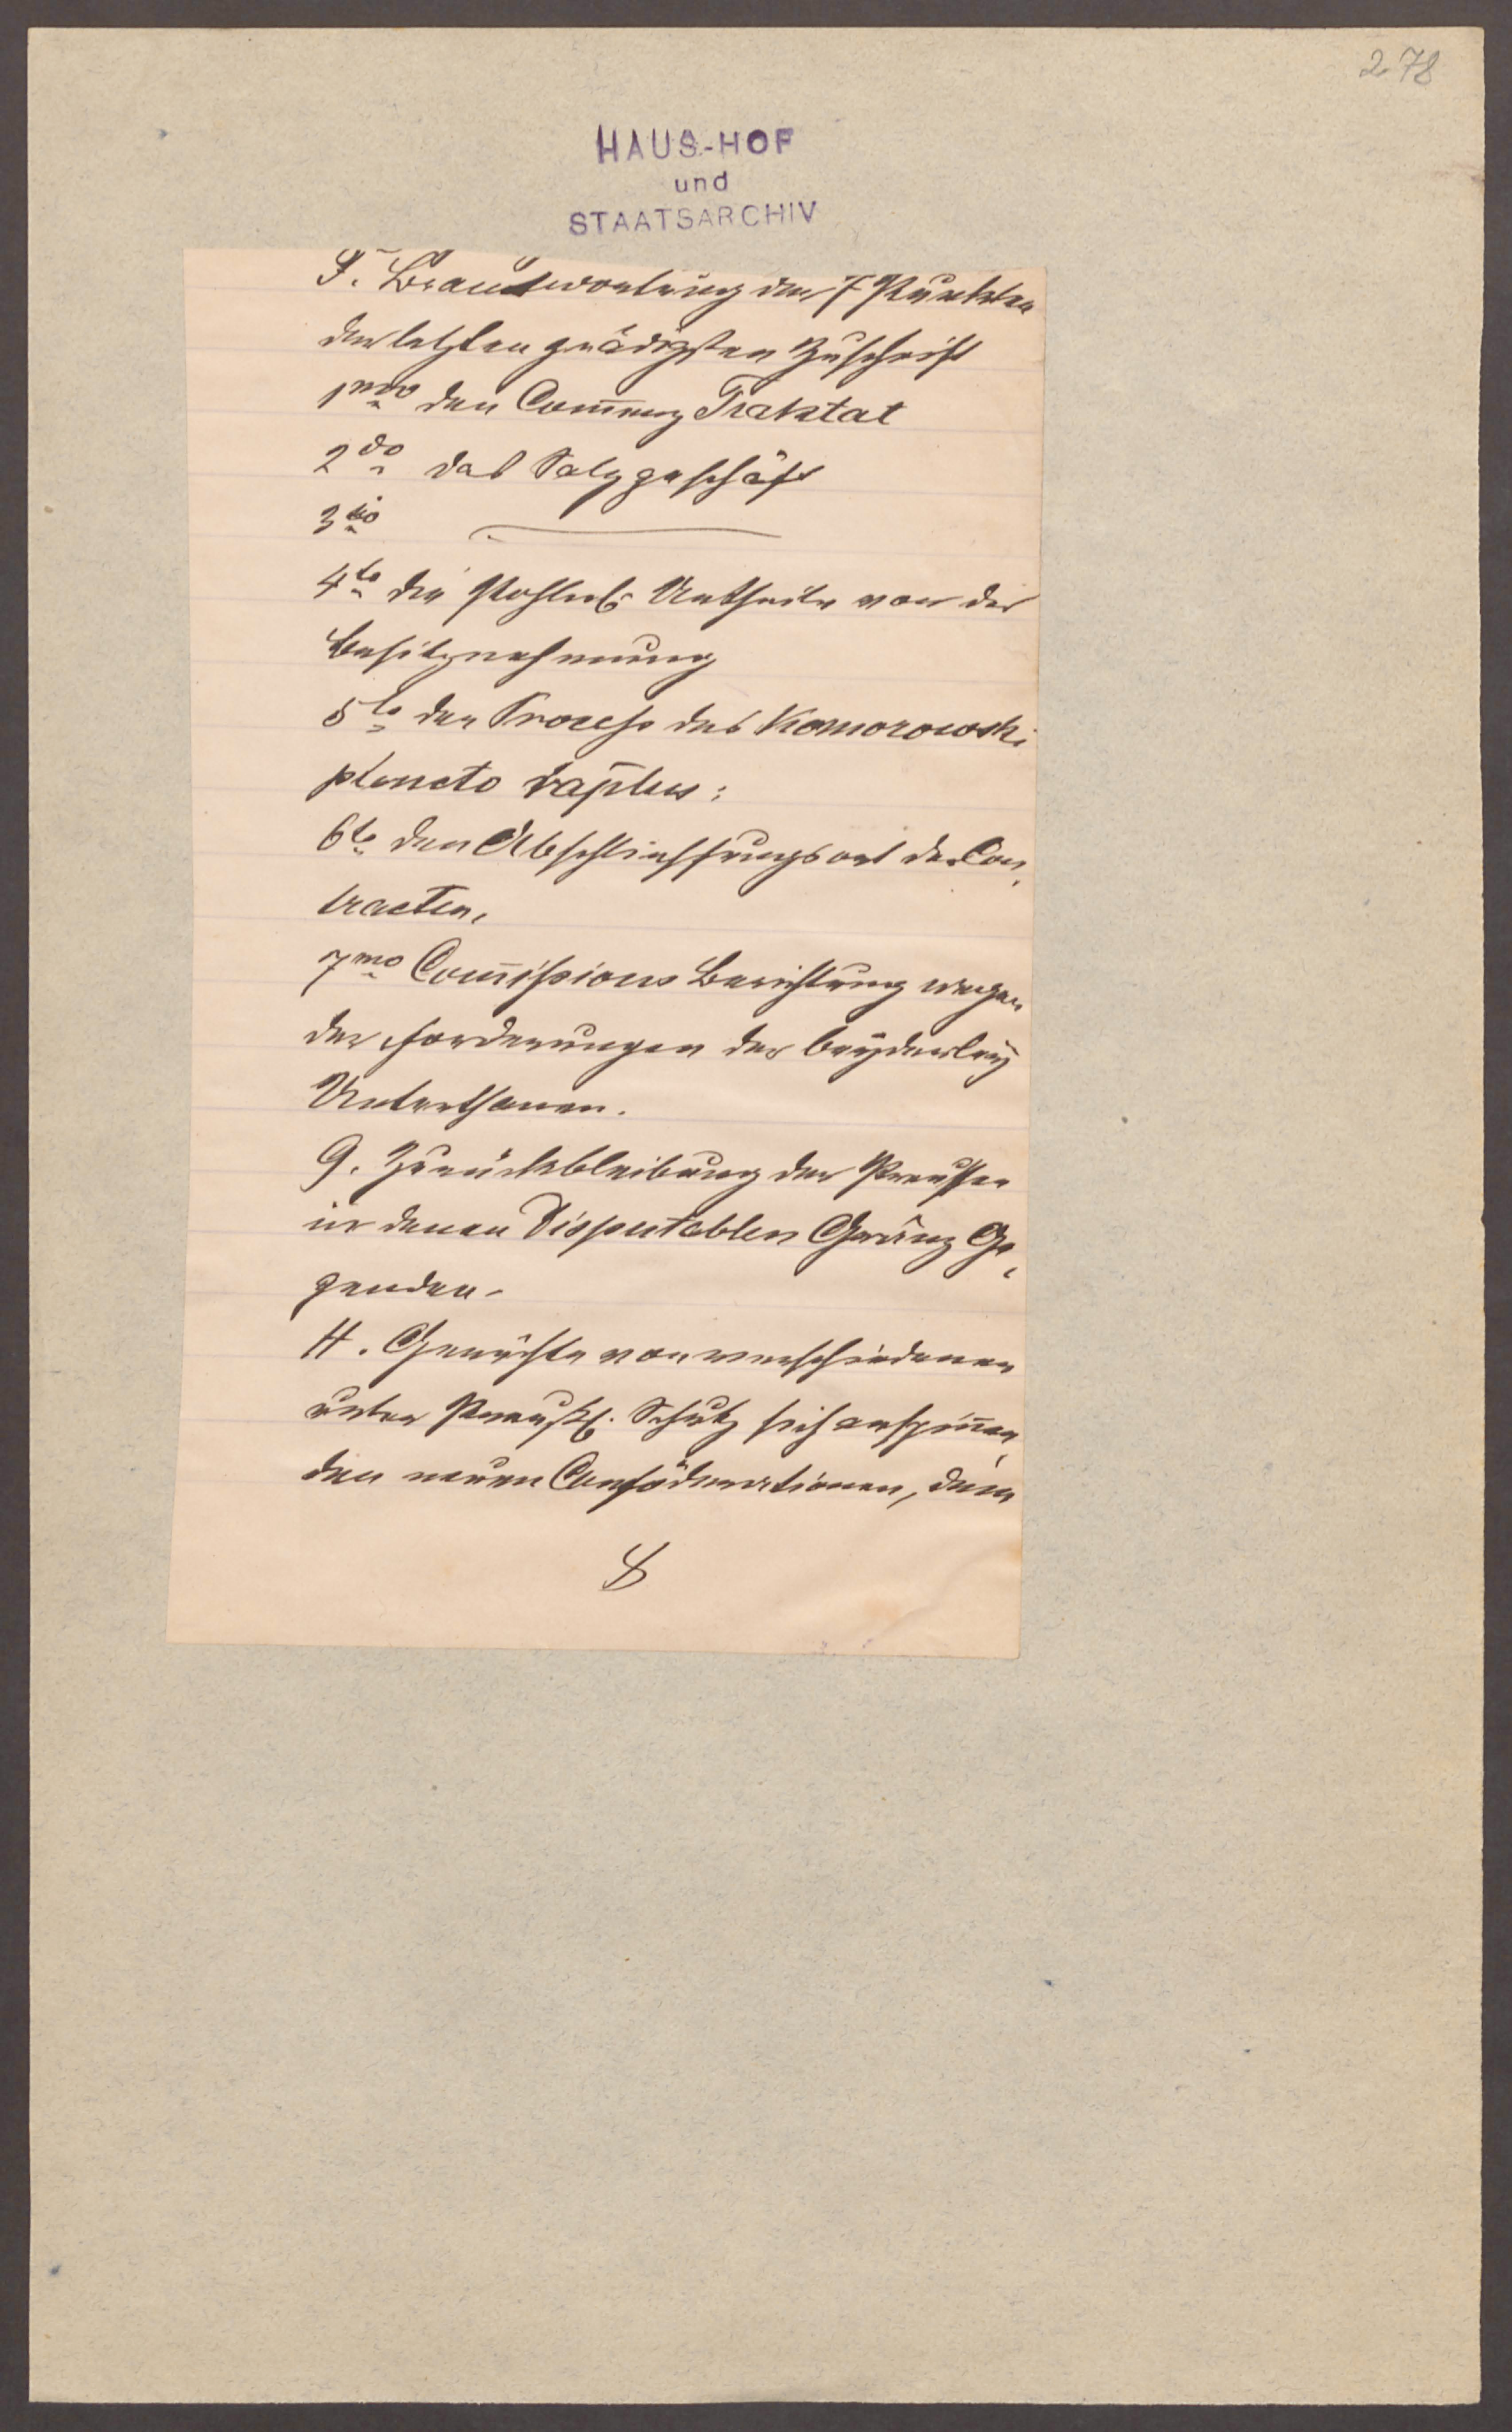 278
HAUS-HOF
und
STAATSARCHIV
F. Beantwortung der 7 Punkten
der letzten gnädigsten Zuschrift
1mo den Com̅erz Traktat
2do das Salzgeschäft
3tio
4to die Pohln. Urtheile von der
Besitznehmung
5to den Process des Komorowski
puncto raptus:
6to den Abschliessungsort der Con,
tracten,
7mo Com̅issions Berichtung wegen
der Forderungen der beyderley
Unterthanen.
G. Zurückbleibung der Preussen
in denen disputablen Gränz Ge,
genden.
H. Gerüchte von verschiedenen
unter Preuß. Schutz sich anspin̅en,
den neuen Conföderationen, dann